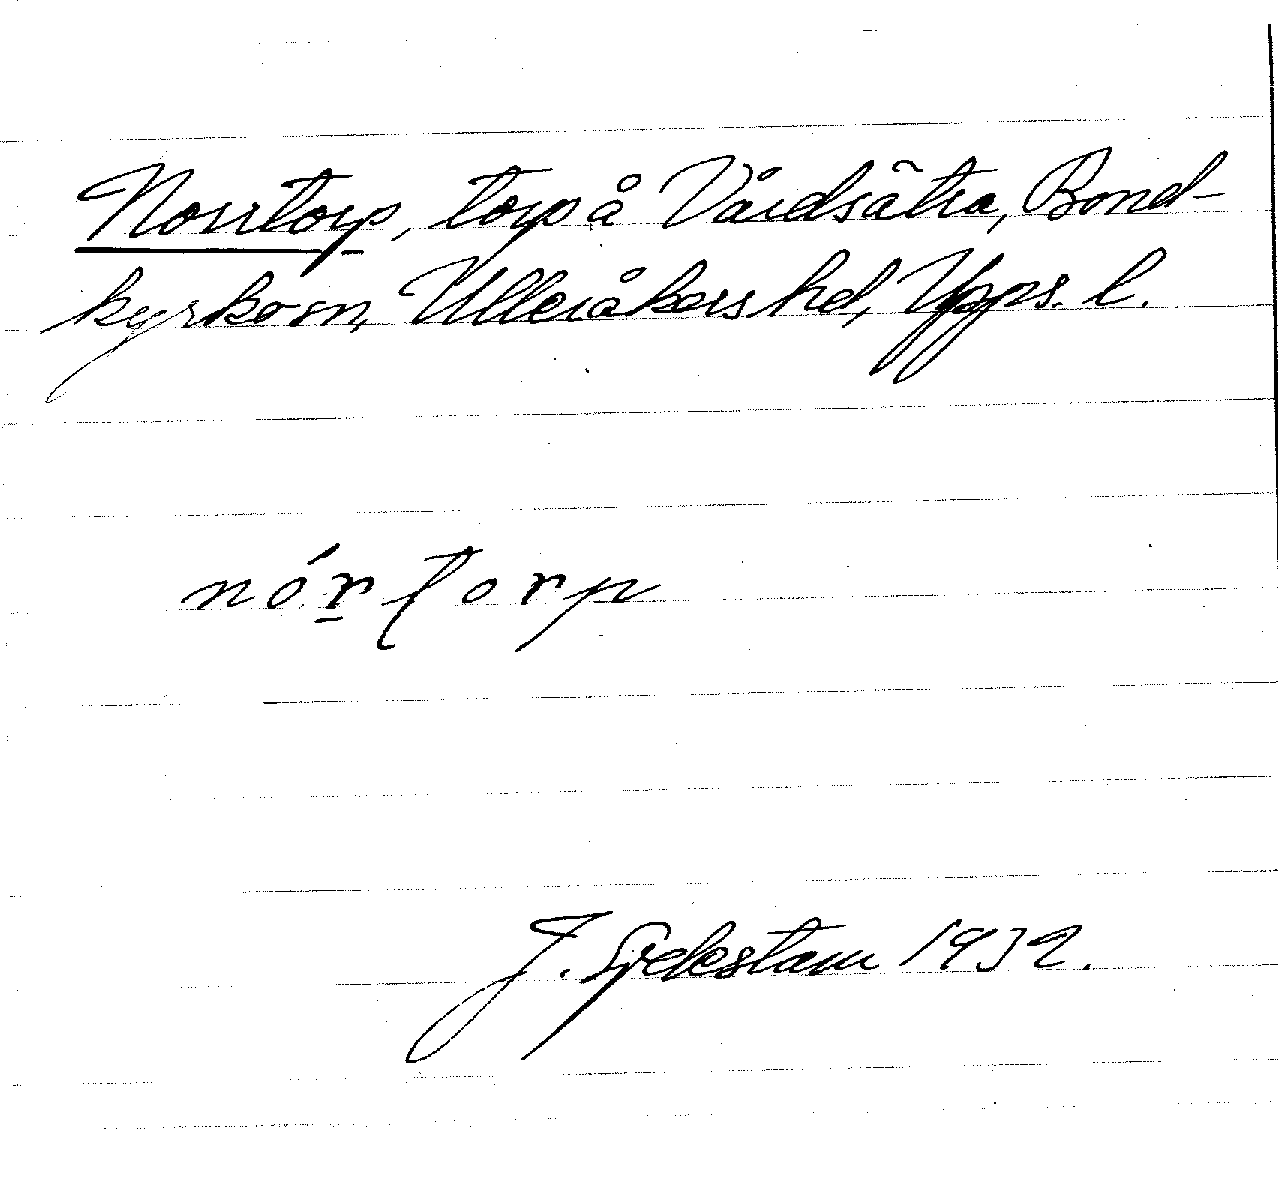 Norrtorp, torp å Vårdsätra, Bond-
kyrko sn, Ulleråkers hd, Upps. l.
nórtorp
J. Sjdestam 1932.